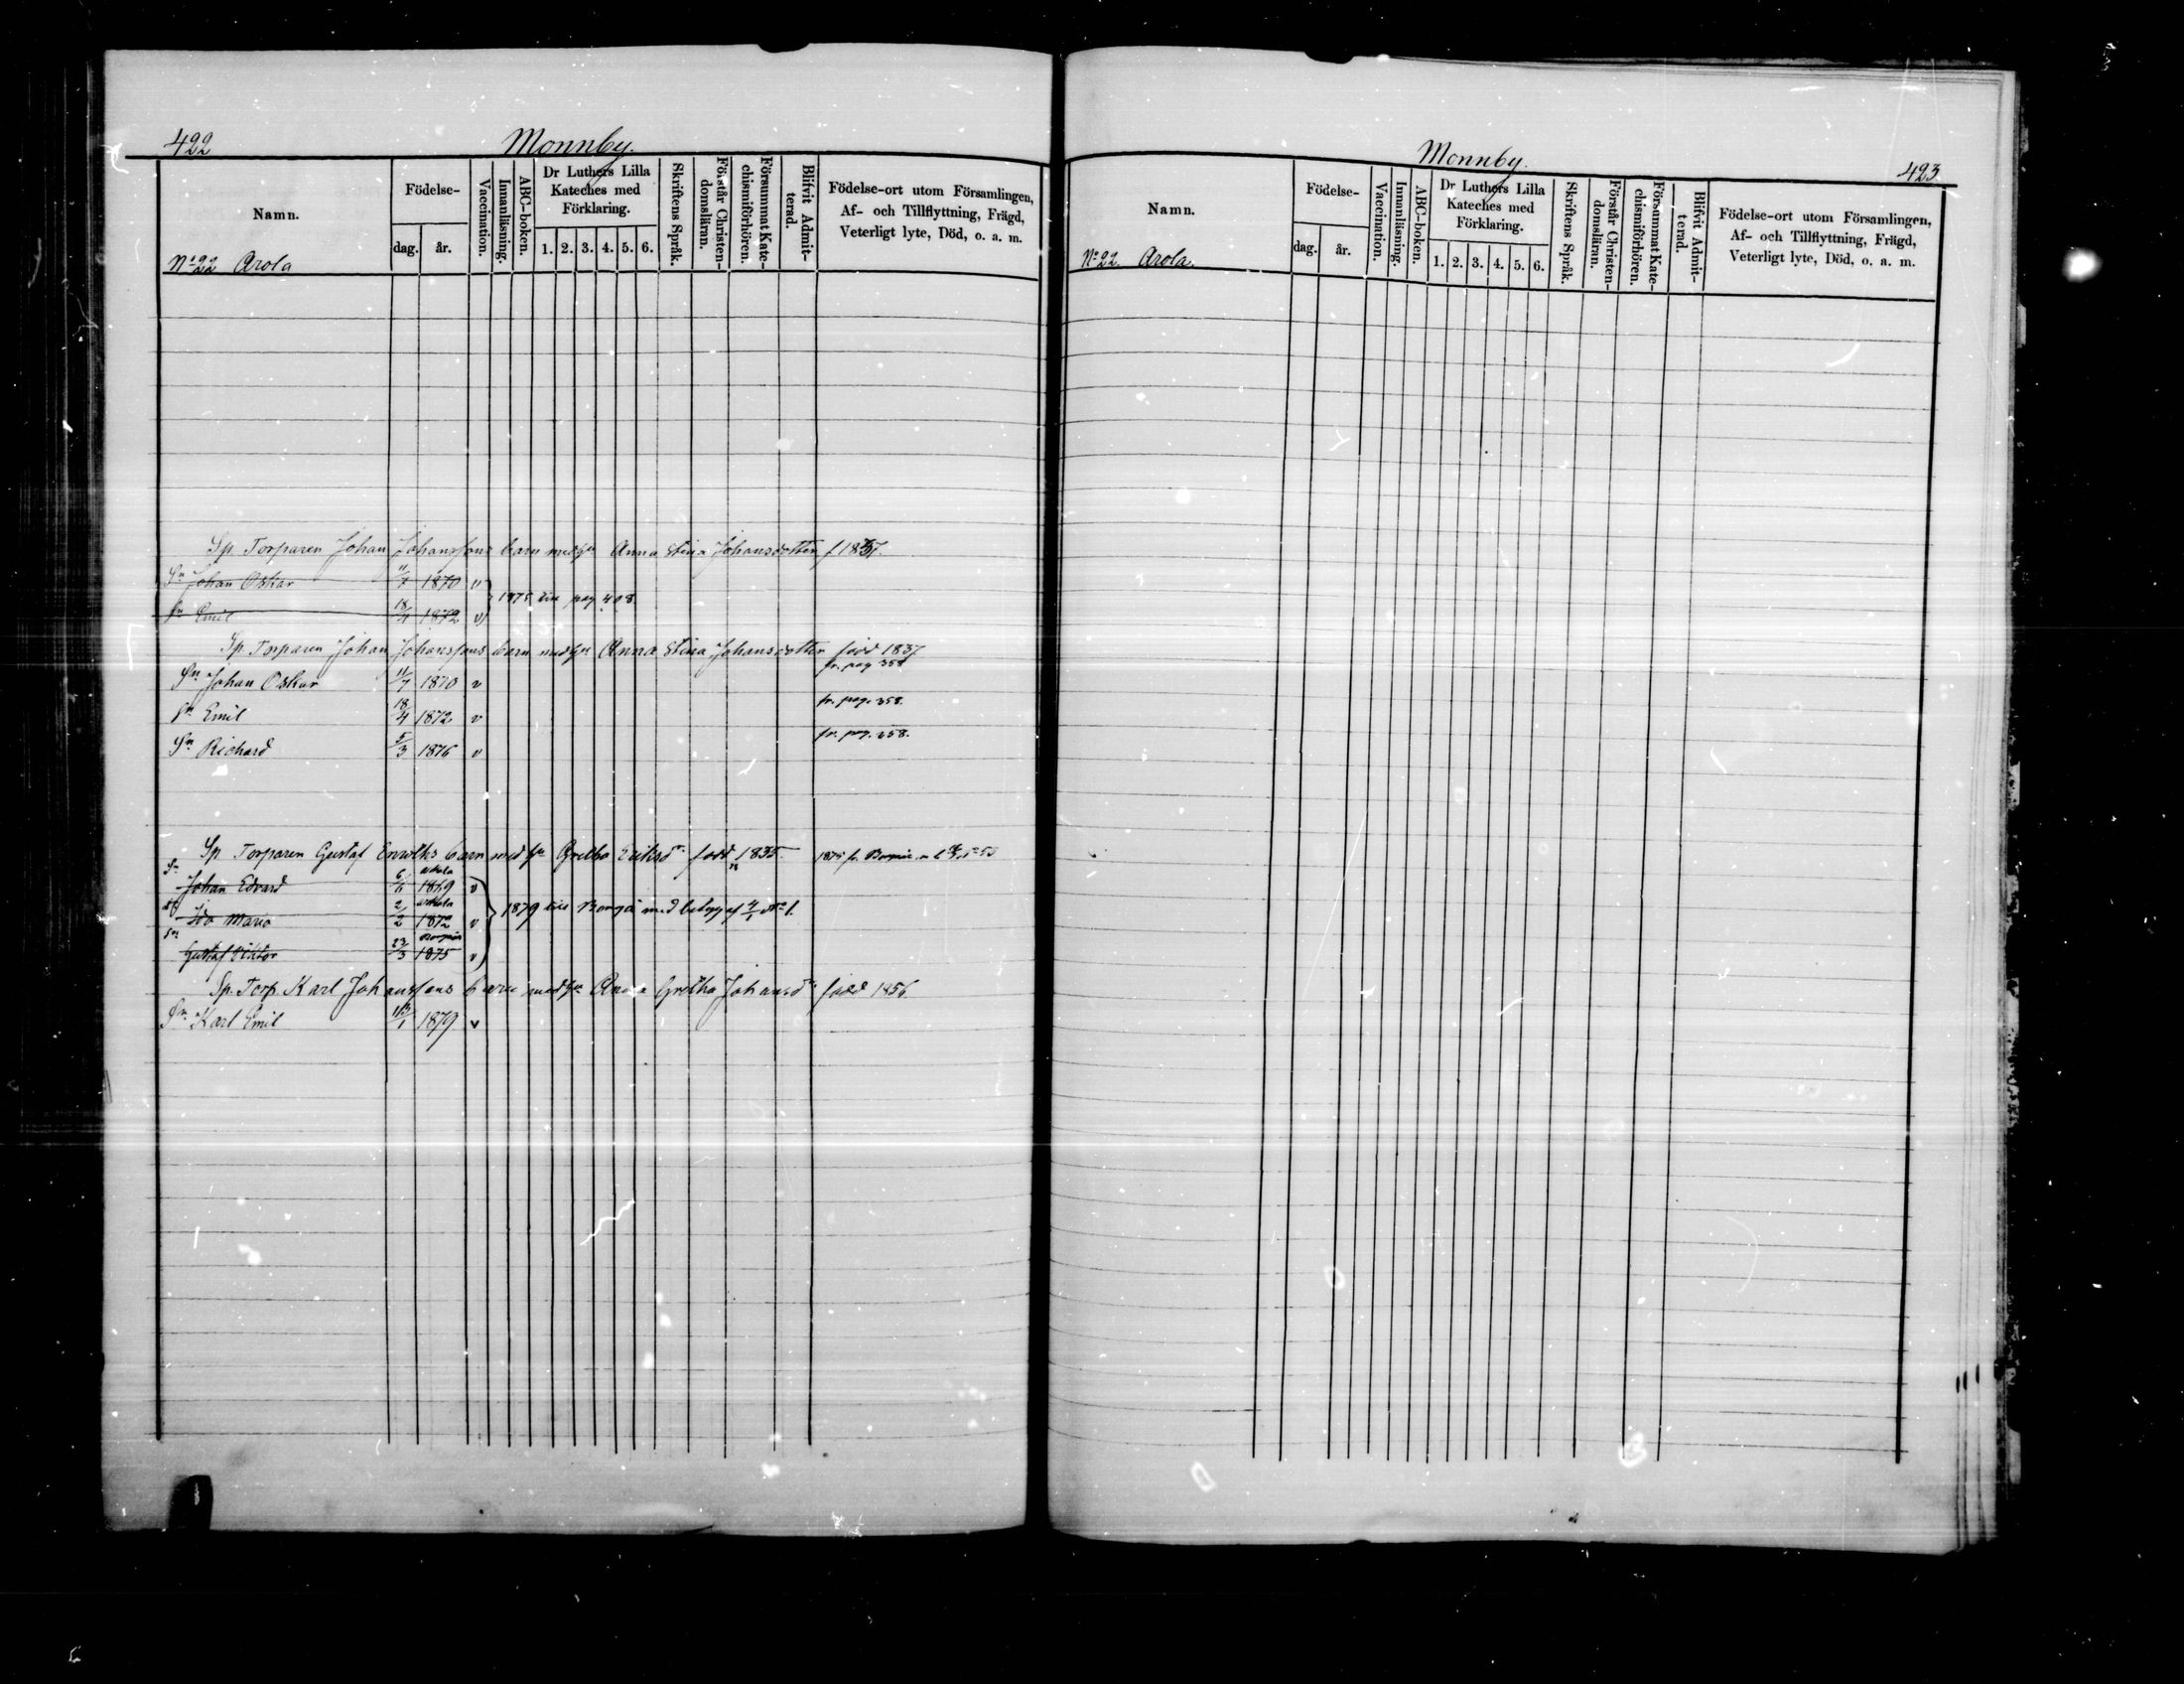 422
Monnby.
Namn.
Födelse-
dag.
år.
Vaccination.
Innanläsning.
ABC-boken.
Dr Luthers Lilla
Kateches med
Förklaring.
1. 2. 3. 4. 5. 6.
Skriftens Språk.
Förstår Christen-
domsläran.
Försummat Kate-
chismiförhören.
Blifvit Admit-
terad.
Födelse-ort utom Församlingen,
Af- och Tillflyttning, Frägd,
Veterligt lyte, Död, o. a. m.
No 22 Arola
Sp. Torparen Johan Johanssons barn med hu Anna Stina Johansdotter f 1837.
Sn Johan Oskar 11/7 1870 v
1875 till pag 408.
Sn Emil 18/4 1872 v
Sp. Torparen Johan Johanssons barn med hu Anna Stina Johansdotter född 1837
Sn Johan Oskar 11/7 1870 v fr. pag 358
Sn Emil 18/4 1872 v fr. pag. 358.
Sn Richard 5/3 1876 v fr. pag. 358.
Sp Torparen Gustaf Enroths barn med hu Gretha Eriksdr född 1835. 1875 fr. Borgå
Sn Johan Edvard 6/6 Askola 1869 v
Ida Maria 2/2 Askola 1872 v
1879 till Borgå med betyg af 4/1 No 1.
Sn Gustaf Viktor 23/3 Borgå 1875 v
Sp. Torp. Karl Johanssons barn med hu Anna Gretha Johansdr född 1856
Sn Karl Emil 1879 v
Monnby.
423
Namn.
Födelse-
dag.
år.
Vaccination.
Innanläsning.
ABC-boken.
Dr Luthers Lilla
Kateches med
Förklaring.
1. 2. 3. 4. 5. 6.
Skriftens Språk.
Förstår Christen-
domsläran.
Försummat Kate-
chismiförhören.
Blifvit Admit-
terad.
Födelse-ort utom Församlingen,
Af- och Tillflyttning, Frägd,
Veterligt lyte, Död, o. a. m.
No 22. Arola.